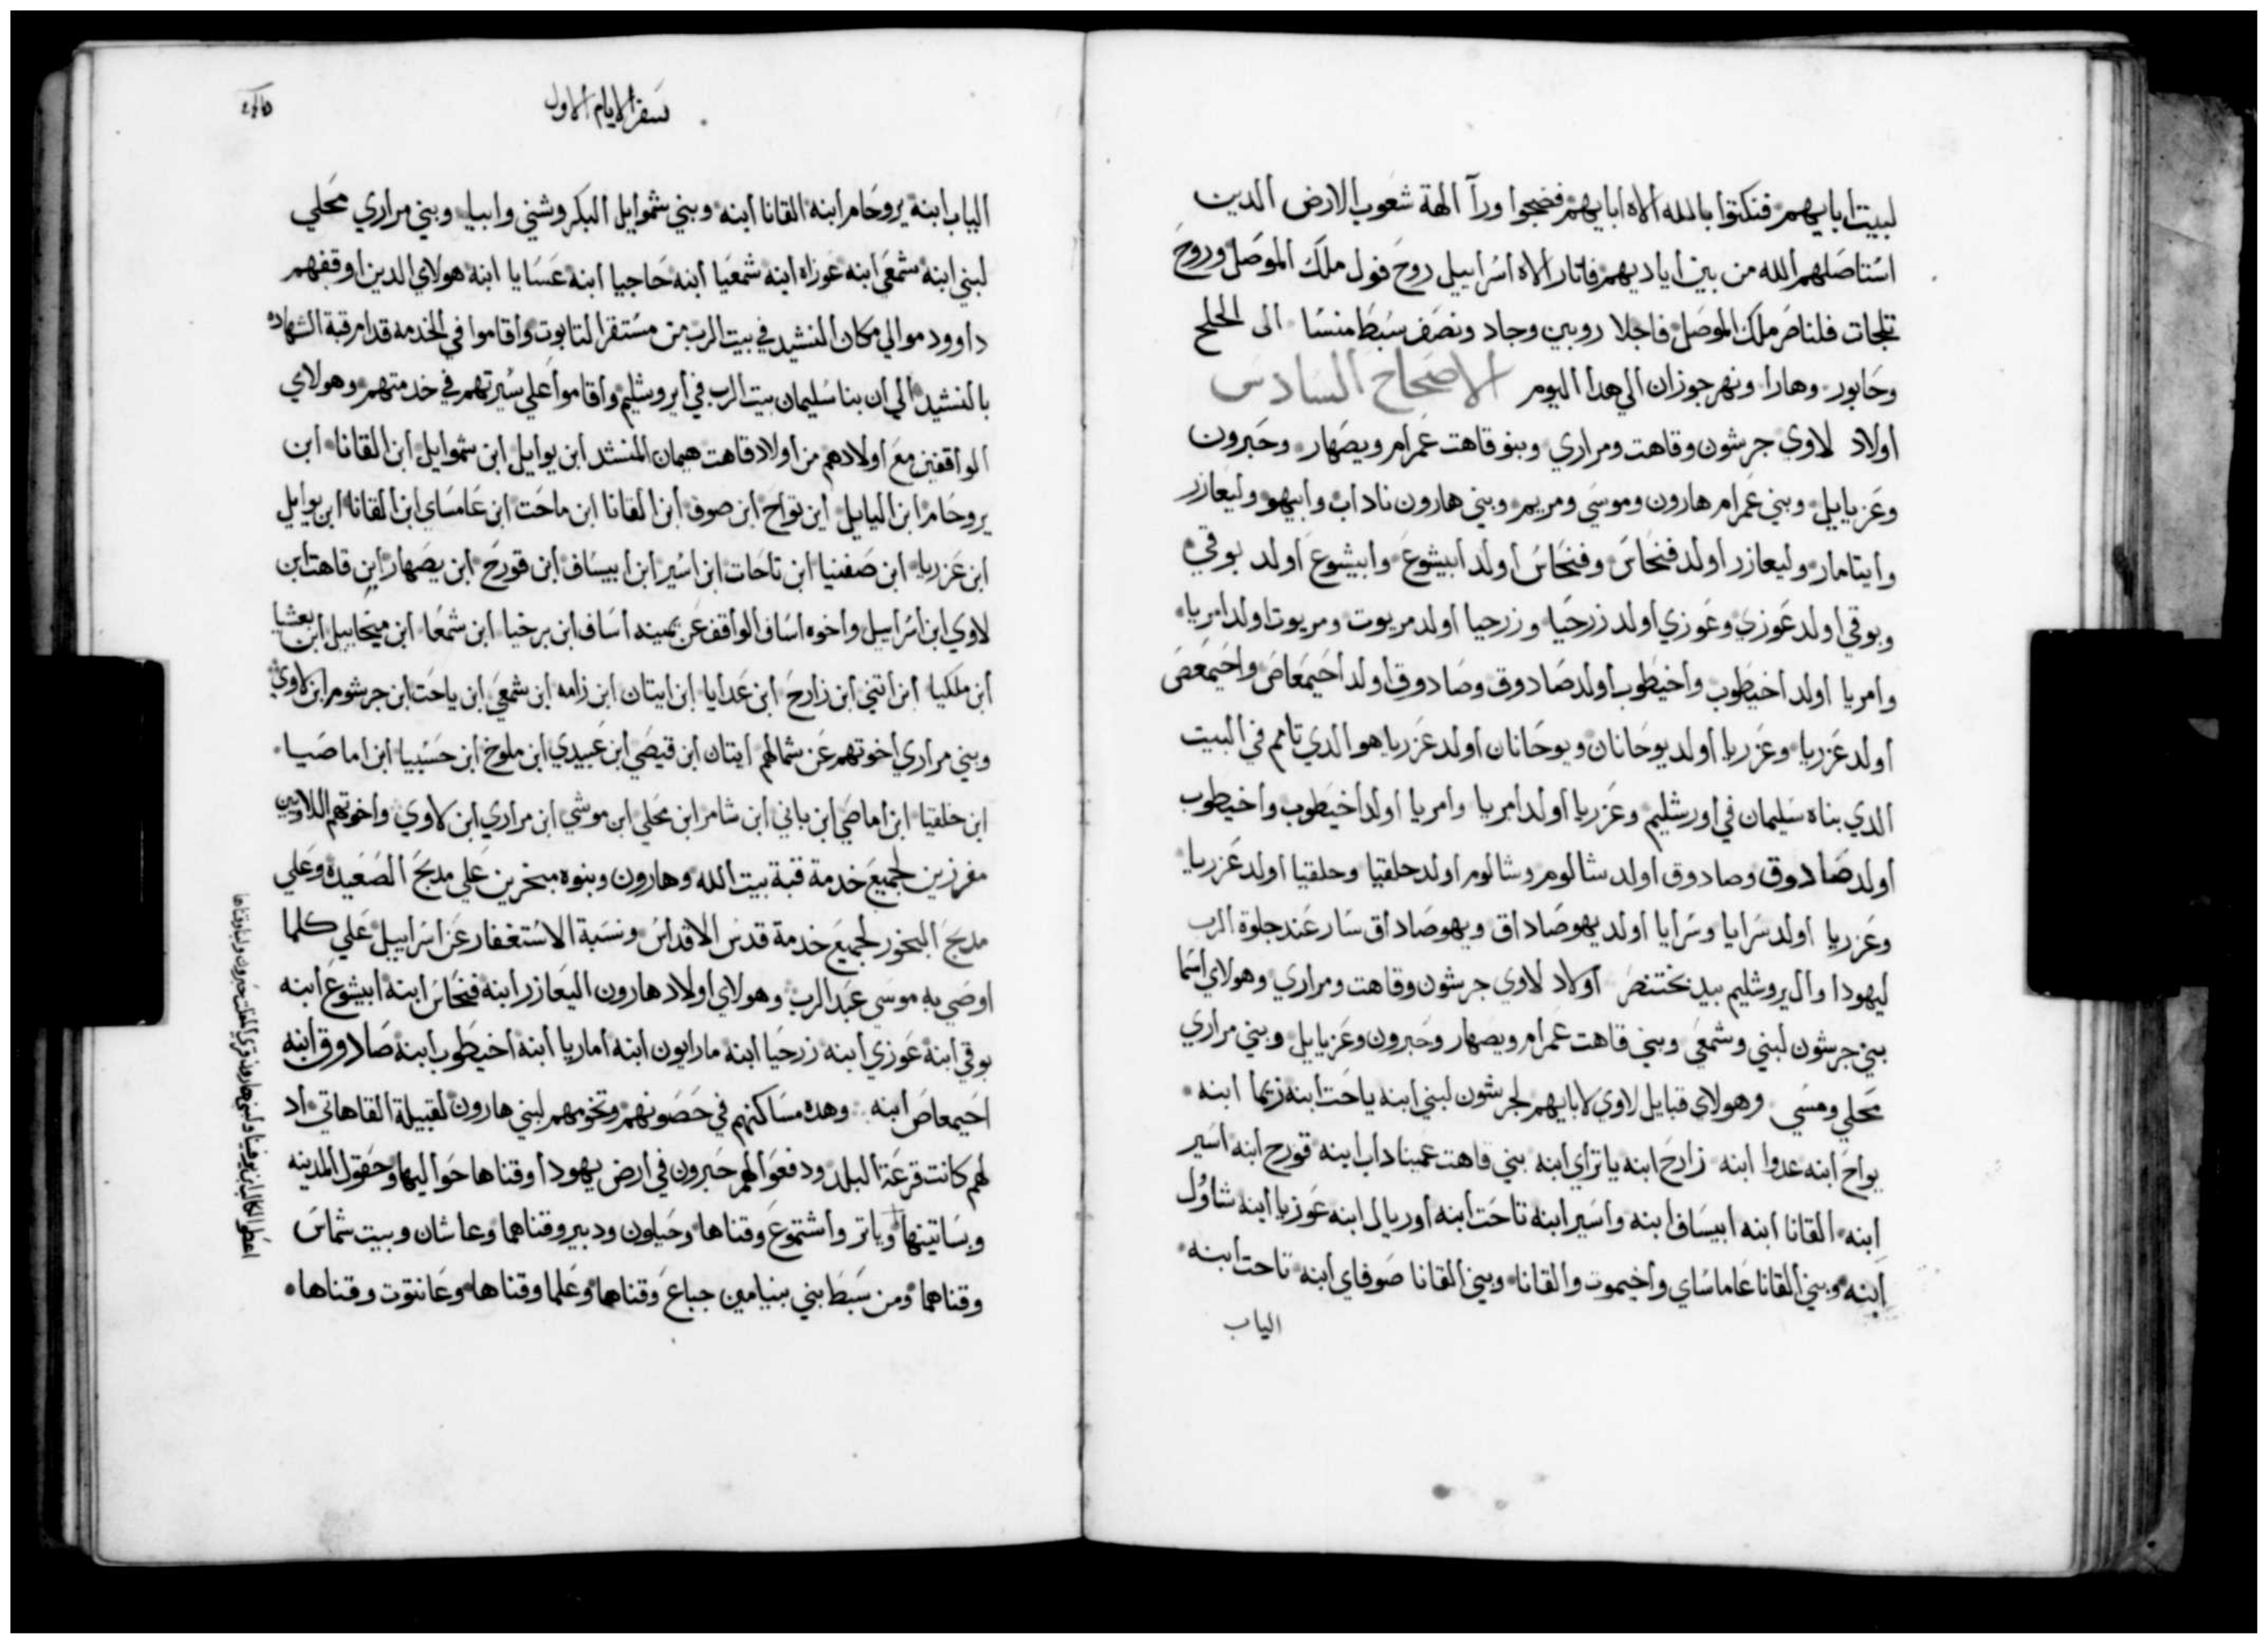 لبيت ابايهم فنكثوا بالله الاه ابايهم فضجوا ورآ الهة شعوب الارض الدين
استاصلهم الله من بين اياديهم فاثار الاه اسراييل روح فول ملك الموصل وروح
تلجات فلناصر ملك الموصل فاجلا روبين وجاد ونصف سبط منسا الى الحلح
وحابور وهارا ونهر جوزان الي هدا اليوم الاصحاح السادس
اولاد لاوي جرشون وقاهت ومراري وبنو قاهت عمرام ويصهار وحبرون
وعزيايل وبني عمرام هارون وموسي ومريم وبني هارون ناداب وابيهو وليعازر
وايتامار وليعازر اولد فنحاس وفنحاس اولد ابيشوع وابيشوع اولد بوقي
وبوقي اولد عوزي وعوزي اولد زرحيا وزرحيا اولد مريوت ومريوت اولد امريا
وامريا اولد اخيطوب واخيطوب اولد صادوق وصادوق اولد احيمعاص واحيمعص
اولد عزريا وعزريا اولد يوحانان ويوحانان اولد عزريا هو الدي تامم في البيت
الدي بناه سليمان في اورشليم وعزريا اولد امريا وامريا اولد اخيطوب واخيطوب
اولد صادوق وصادوق اولد شالوم وشالوم اولد حلقيا وحلقيا اولد عزريا
وعزريا اولد سرايا وسرايا اولد يهوصاداق ويهوصاداق سار عند جلوة الرب
ليهودا واليروشليم بيد بختنصر اولاد لاوي جرشون وقاهت ومراري وهولاي اسما
بني جرشون لبني وشمعي وبني قاهت عمرام ويصهار وحبرون وعزيايل وبني مراري
محلي ومسي وهولاي قبايل لاوي لابايهم لجرشون لبني ابنه ياحت ابنه زيما ابنه
يواح ابنه عدوا ابنه زارح ابنه ياتراي ابنه بني قاهت عميناداب ابنه قورح ابنه اسير
ابنه القانا ابنه ابيساف ابنه واسير ابنه تاحت ابنه اوريال ابنه عوزيا ابنه شاوُل
ابنه وبني القانا عاماساي واخيموت والقانا وبني القانا صوفاي ابنه تاحت ابنه
الياب
سفر الايام الاول
الياب ابنه يروحام ابنه القانا ابنه وبني شموايل البكر وشني وابيا وبني مراري محلي
لبني ابنه شمعي ابنه عوزاه ابنه شمعيا ابنه حاجيا ابنه عسايا ابنه هولاي الدين اوقفهم
داوود موالي مكان النشيد في بيت الرب من مستقر التابوت واقاموا في الخدمه قدام قبة الشهاده
بالنشيد الي ان بنا سليمان بيت الرب في ايروشليم واقاموا علي سيرتهم في خدمتهم وهولاي
الواقفين مع اولادهم من اولاد قاهت هيمان المنشد ابن يوايل ابن شموايل ابن القانا ابن
يروحام ابن اليايل ابن تواح ابن صوف ابن القانا ابن ماحت ابن عاماساي ابن القانا ابن يوايل
ابن عزريا ابن صفنيا ابن تاحات ابن اسير ابن ابيساف ابن قورح ابن يصهار ابن قاهت ابن
لاوي ابن اسراييل واخوه اساف الواقف عن يمينه اساف ابن برخيا ابن شمعا ابن ميخاييل ابن بعشيا
ابن ملكيا ابن اتني ابن زارح ابن عدايا ابن ايتان ابن زامه ابن شمعي ابن ياحت ابن جرشوم ابن لاوي
وبني مراري اخوتهم عن شمالهم ايتان ابن قيصي ابن عبيدي ابن ملوخ ابن حسبيا ابن اماصيا
ابن حلقيا ابن اماصي ابن باني ابن شامر ابن محلي ابن موشي ابن مراري ابن لاوي واخوتهم اللاويين
مفرزين لجميع خدمة قبة بيت الله وهارون وبنوه مبخرين علي مدبح الصعيدة وعلي
مدبح البخور لجميع خدمة قدس الاقداس ونسبة الاستغفار عن اسراييل علي كلما
اوصي به موسي عبد الرب وهولاي اولاد هارون اليعازر ابنه فنحاس ابنه ابيشوع ابنه
بوقي ابنه عوزي ابنه زرحيا ابنه مارايون ابنه اماريا ابنه اخيطوب ابنه صادوق ابنه
احيمعاص ابنه وهده مساكنهم في حصونهم وتخومهم لبني هارون لقبيلة القاهاتي اد
لهم كانت قرعة البلد ودفعوا لهم حبرون في ارض يهودا وقناها حواليها وحقول المدينه
وبساتينها وياتر واشتموع وقناها وحيلون ودبير وقناهما وعاشان وبيت شماس
وقناهما ومن سبط بني بنيامين جباع وقناها وعلما وقناها وعانتوت وقناها
اعطوا لكالاب ابن يوفنيا ولبني هارون قري الملجات حبرون ولبنا وقناها